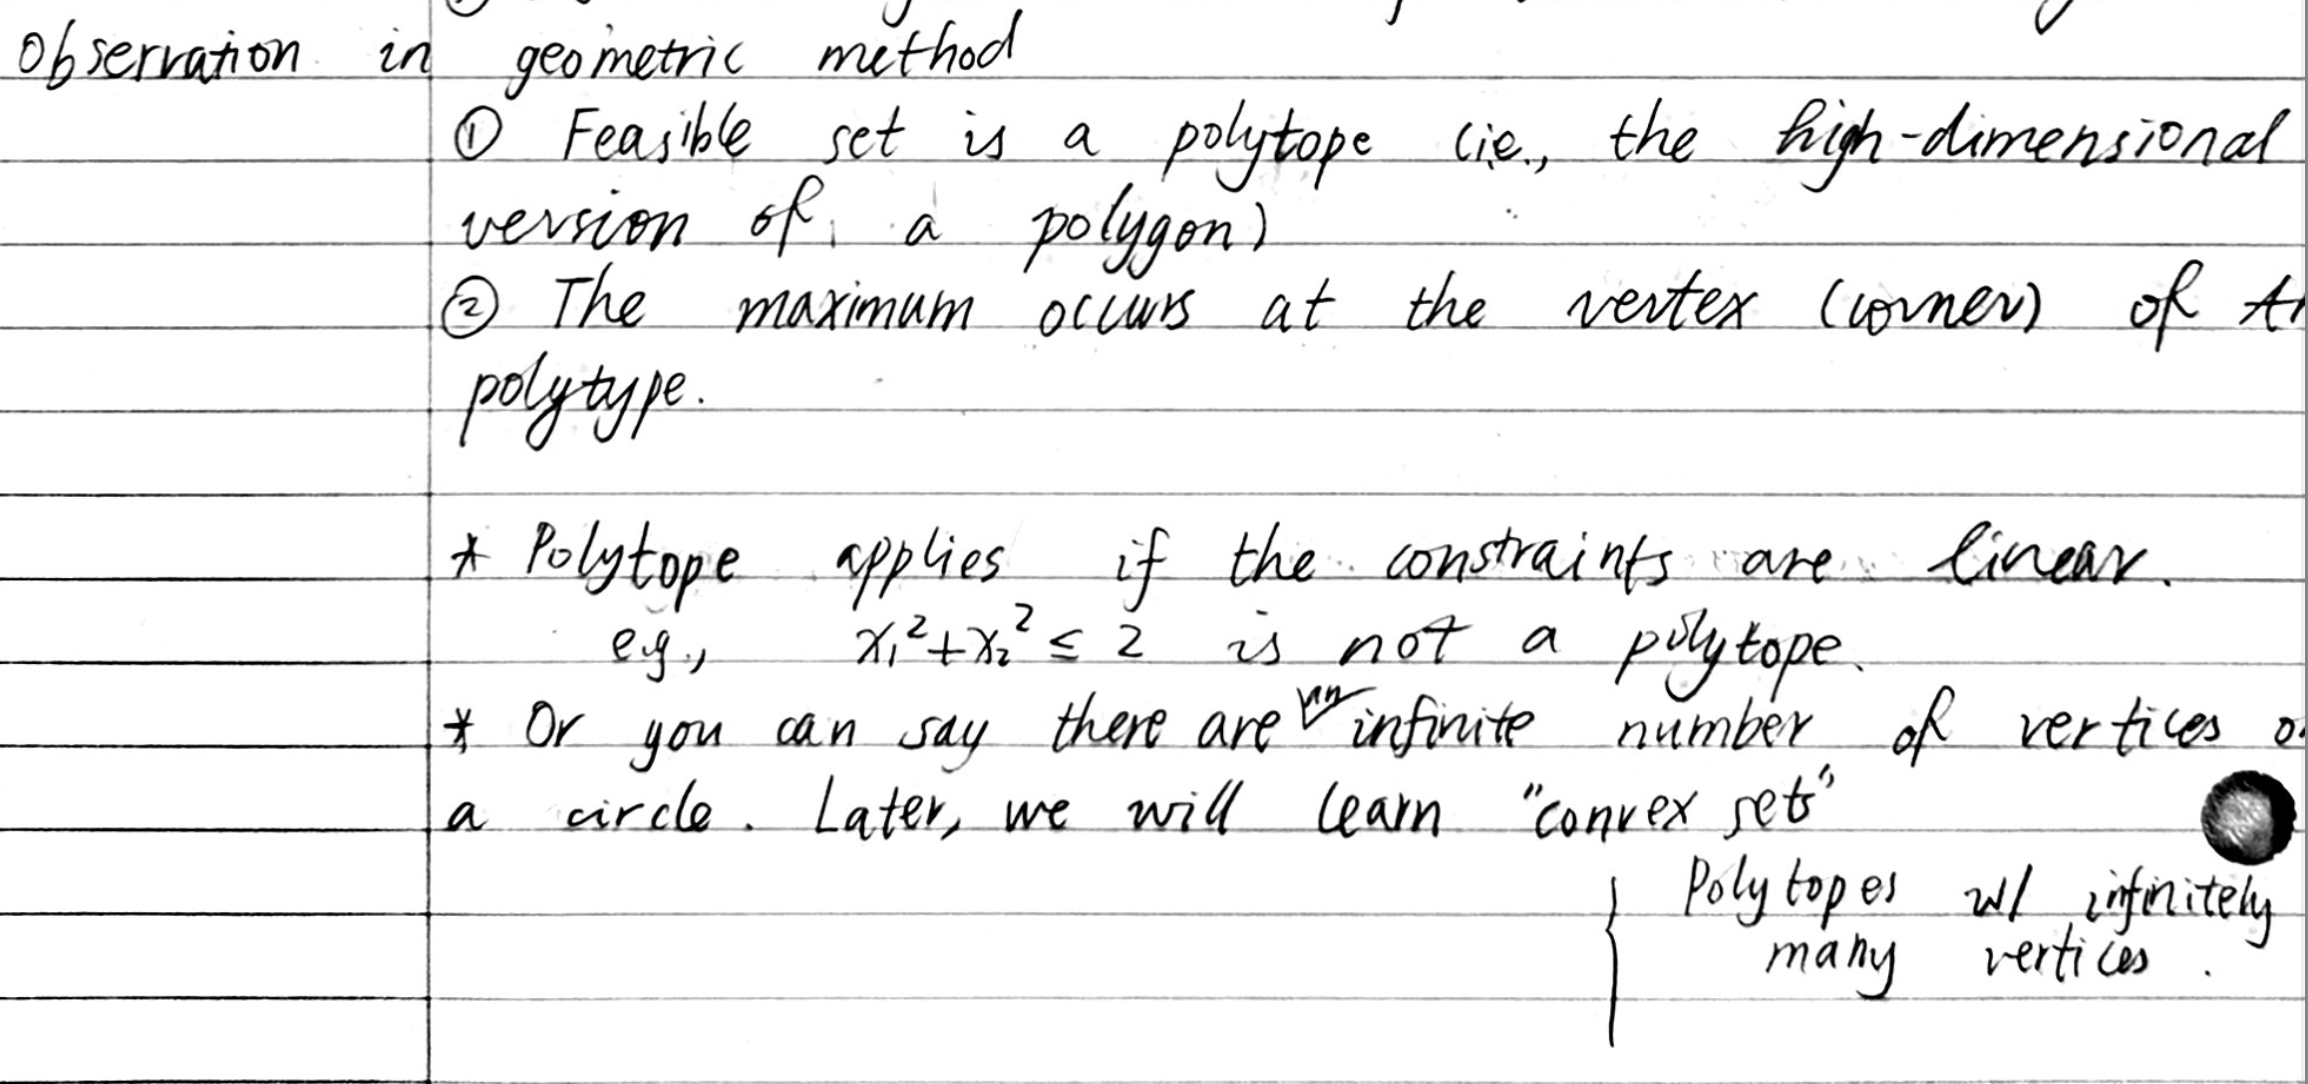 Observation in geometric method
① Feasible set is a polytope (ie., the high-dimensional
version of a polygon)
② The maximum occurs at the vertex (corner) of
polytype.
* Polytope applies if the constraints are linear.
e.g., x₁²+x₂² ≤ 2 is not a polytope.
* Or you can say there are an infinite number of vertices
a circle. Later, we will learn "convex sets"
Polytopes w/ infinitely
many vertices.